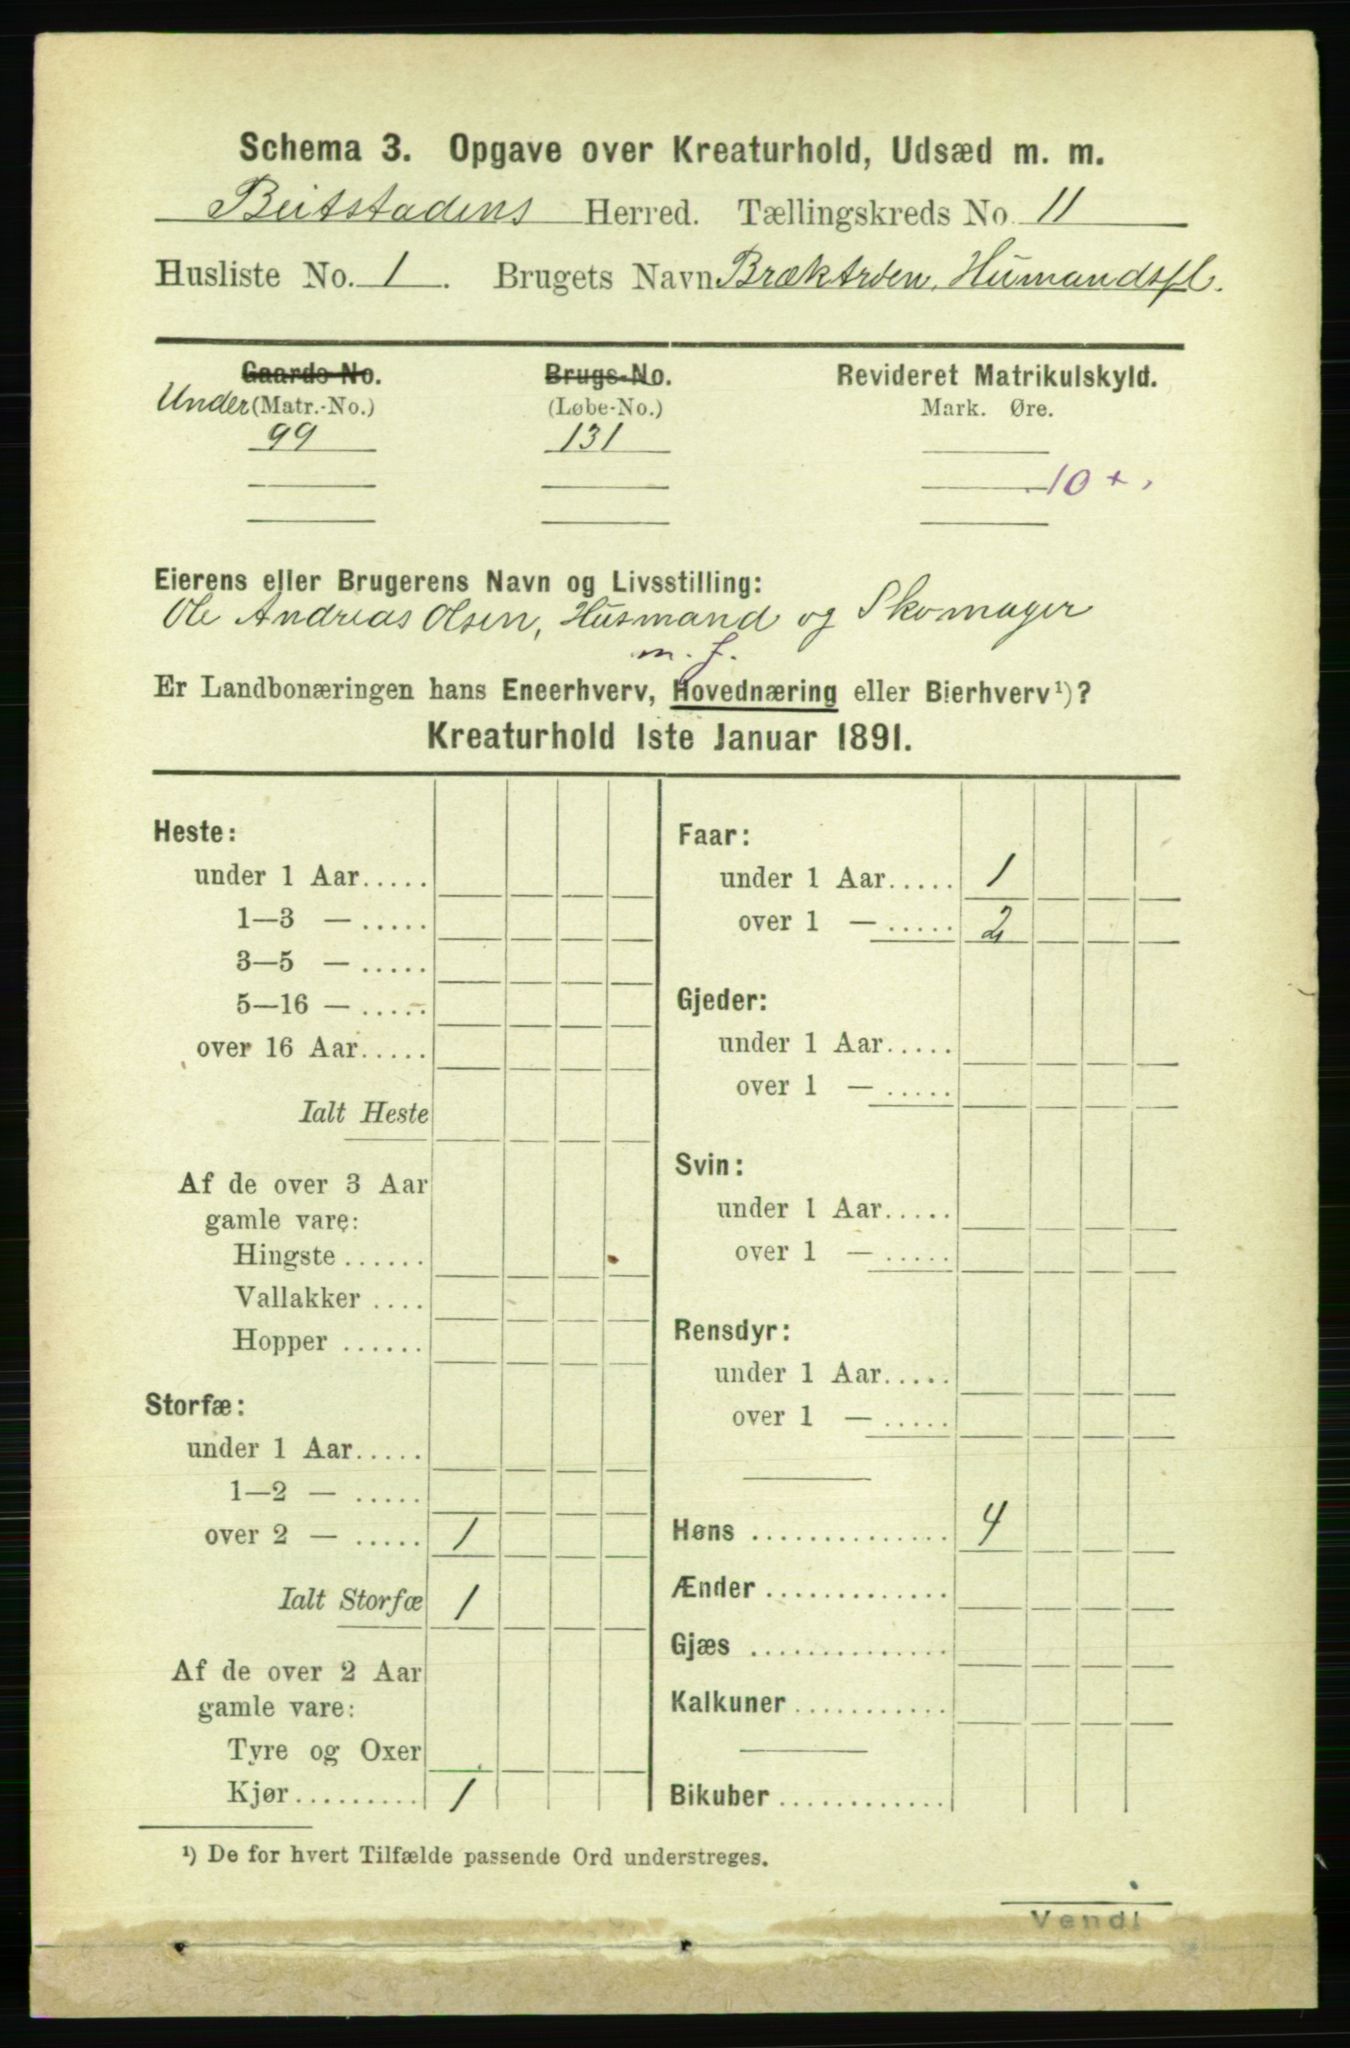 Schema 3. Opgave over Kreaturhold, Udsæd m. m.
Beitstadens Herred. Tællingskreds No. 11
Husliste No. 1. Brugets Navn Humandspl.
Gaards-No. Brugs-No. Revideret Matrikulskyld.
Under (Matr.-No.) (Løbe-No.) Mark. Øre.
99 131
10 +
Eierens eller Brugerens Navn og Livsstilling:
Ole Andreas Olsen, Husmand og Skomager
m. f.
Er Landbonæringen hans Eneerhverv, Hovednæring eller Bierhverv¹)?
Kreaturhold 1ste Januar 1891.
Heste:
under 1 Aar.....
1—3 — .....
3—5 — .....
5—16 — .....
over 16 Aar.....
Ialt Heste
Af de over 3 Aar
gamle vare:
Hingste ......
Vallakker ....
Hopper ......
Storfæ:
under 1 Aar.....
1—2 — .....
over 2 — ..... 1
Ialt Storfæ 1
Af de over 2 Aar
gamle vare:
Tyre og Oxer
Kjør.......... 1
Faar:
under 1 Aar..... 1
over 1 — ..... 2
Gjeder:
under 1 Aar.....
over 1 — .....
Svin:
under 1 Aar.....
over 1 — .....
Rensdyr:
under 1 Aar.....
over 1 — .....
Høns .............. 4
Ænder .............
Gjæs ..............
Kalkuner ...........
Bikuber ............
¹) De for hvert Tilfælde passende Ord understreges.
Vend!